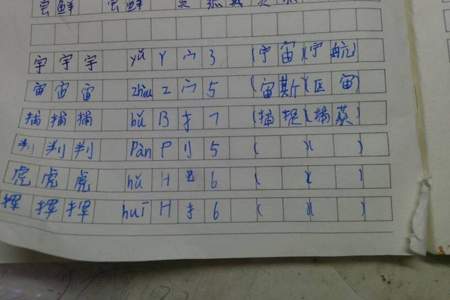 尝鲜 尝鲜
宇宇宇 yǔ Y 宀 3 (宇宙)(宇航)
宙宙宙 zhòu Z 宀 5 (宙斯)(区宙)
捕捕捕 bǔ B 扌 7 (捕捉)(捕获)
判判判 pàn P 刂 5 ( )( )
虎虎虎 hǔ H 虍 6 ( )( )
挥挥挥 huī H 扌 6 ( )( )